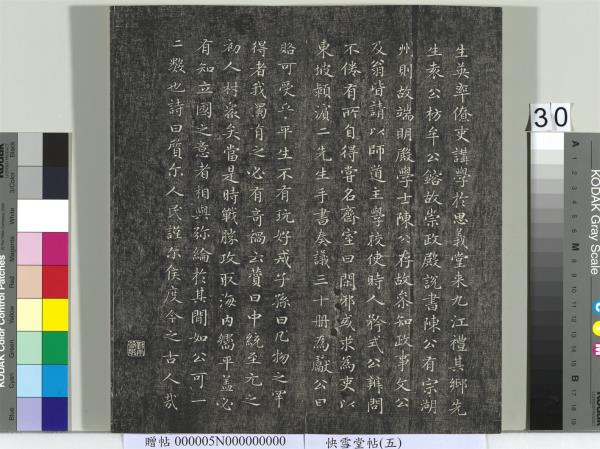 生英率僚吏講學於思義堂來九江禮其鄉先
生袁公枋牟公鎔故崇政殿說書陳公有宗湖
州則故端明殿學士陳公存故參知政事文公
及翁皆請以師道主學校使時人矜式公雜問
不倦有所自得嘗名齋室曰閑邪或求為吏以
東坡潁濱二先生手書奏議三十冊為獻公曰
賂可受乎平生不有玩好戒子孫曰凡物之罕
得者我獨有之必有奇禍云贊曰中統至元之
初人材衆矣當是時戰勝攻取海內獮平蓋必
有知立國之意者相與弥綸於其間如公可一
二數也詩曰質尔人民謹尔侯度今之古人哉
30
KODAK Gray Scale
KODAK Color Control Patches
Black
3/Color
White
Magenta
Red
Yellow
Green
Cyan
Blue
A
1
2
3
4
5
6
M
8
9
10
11
12
13
14
15
B
17
18
19
贈帖 000005N000000000
快雪堂帖(五)